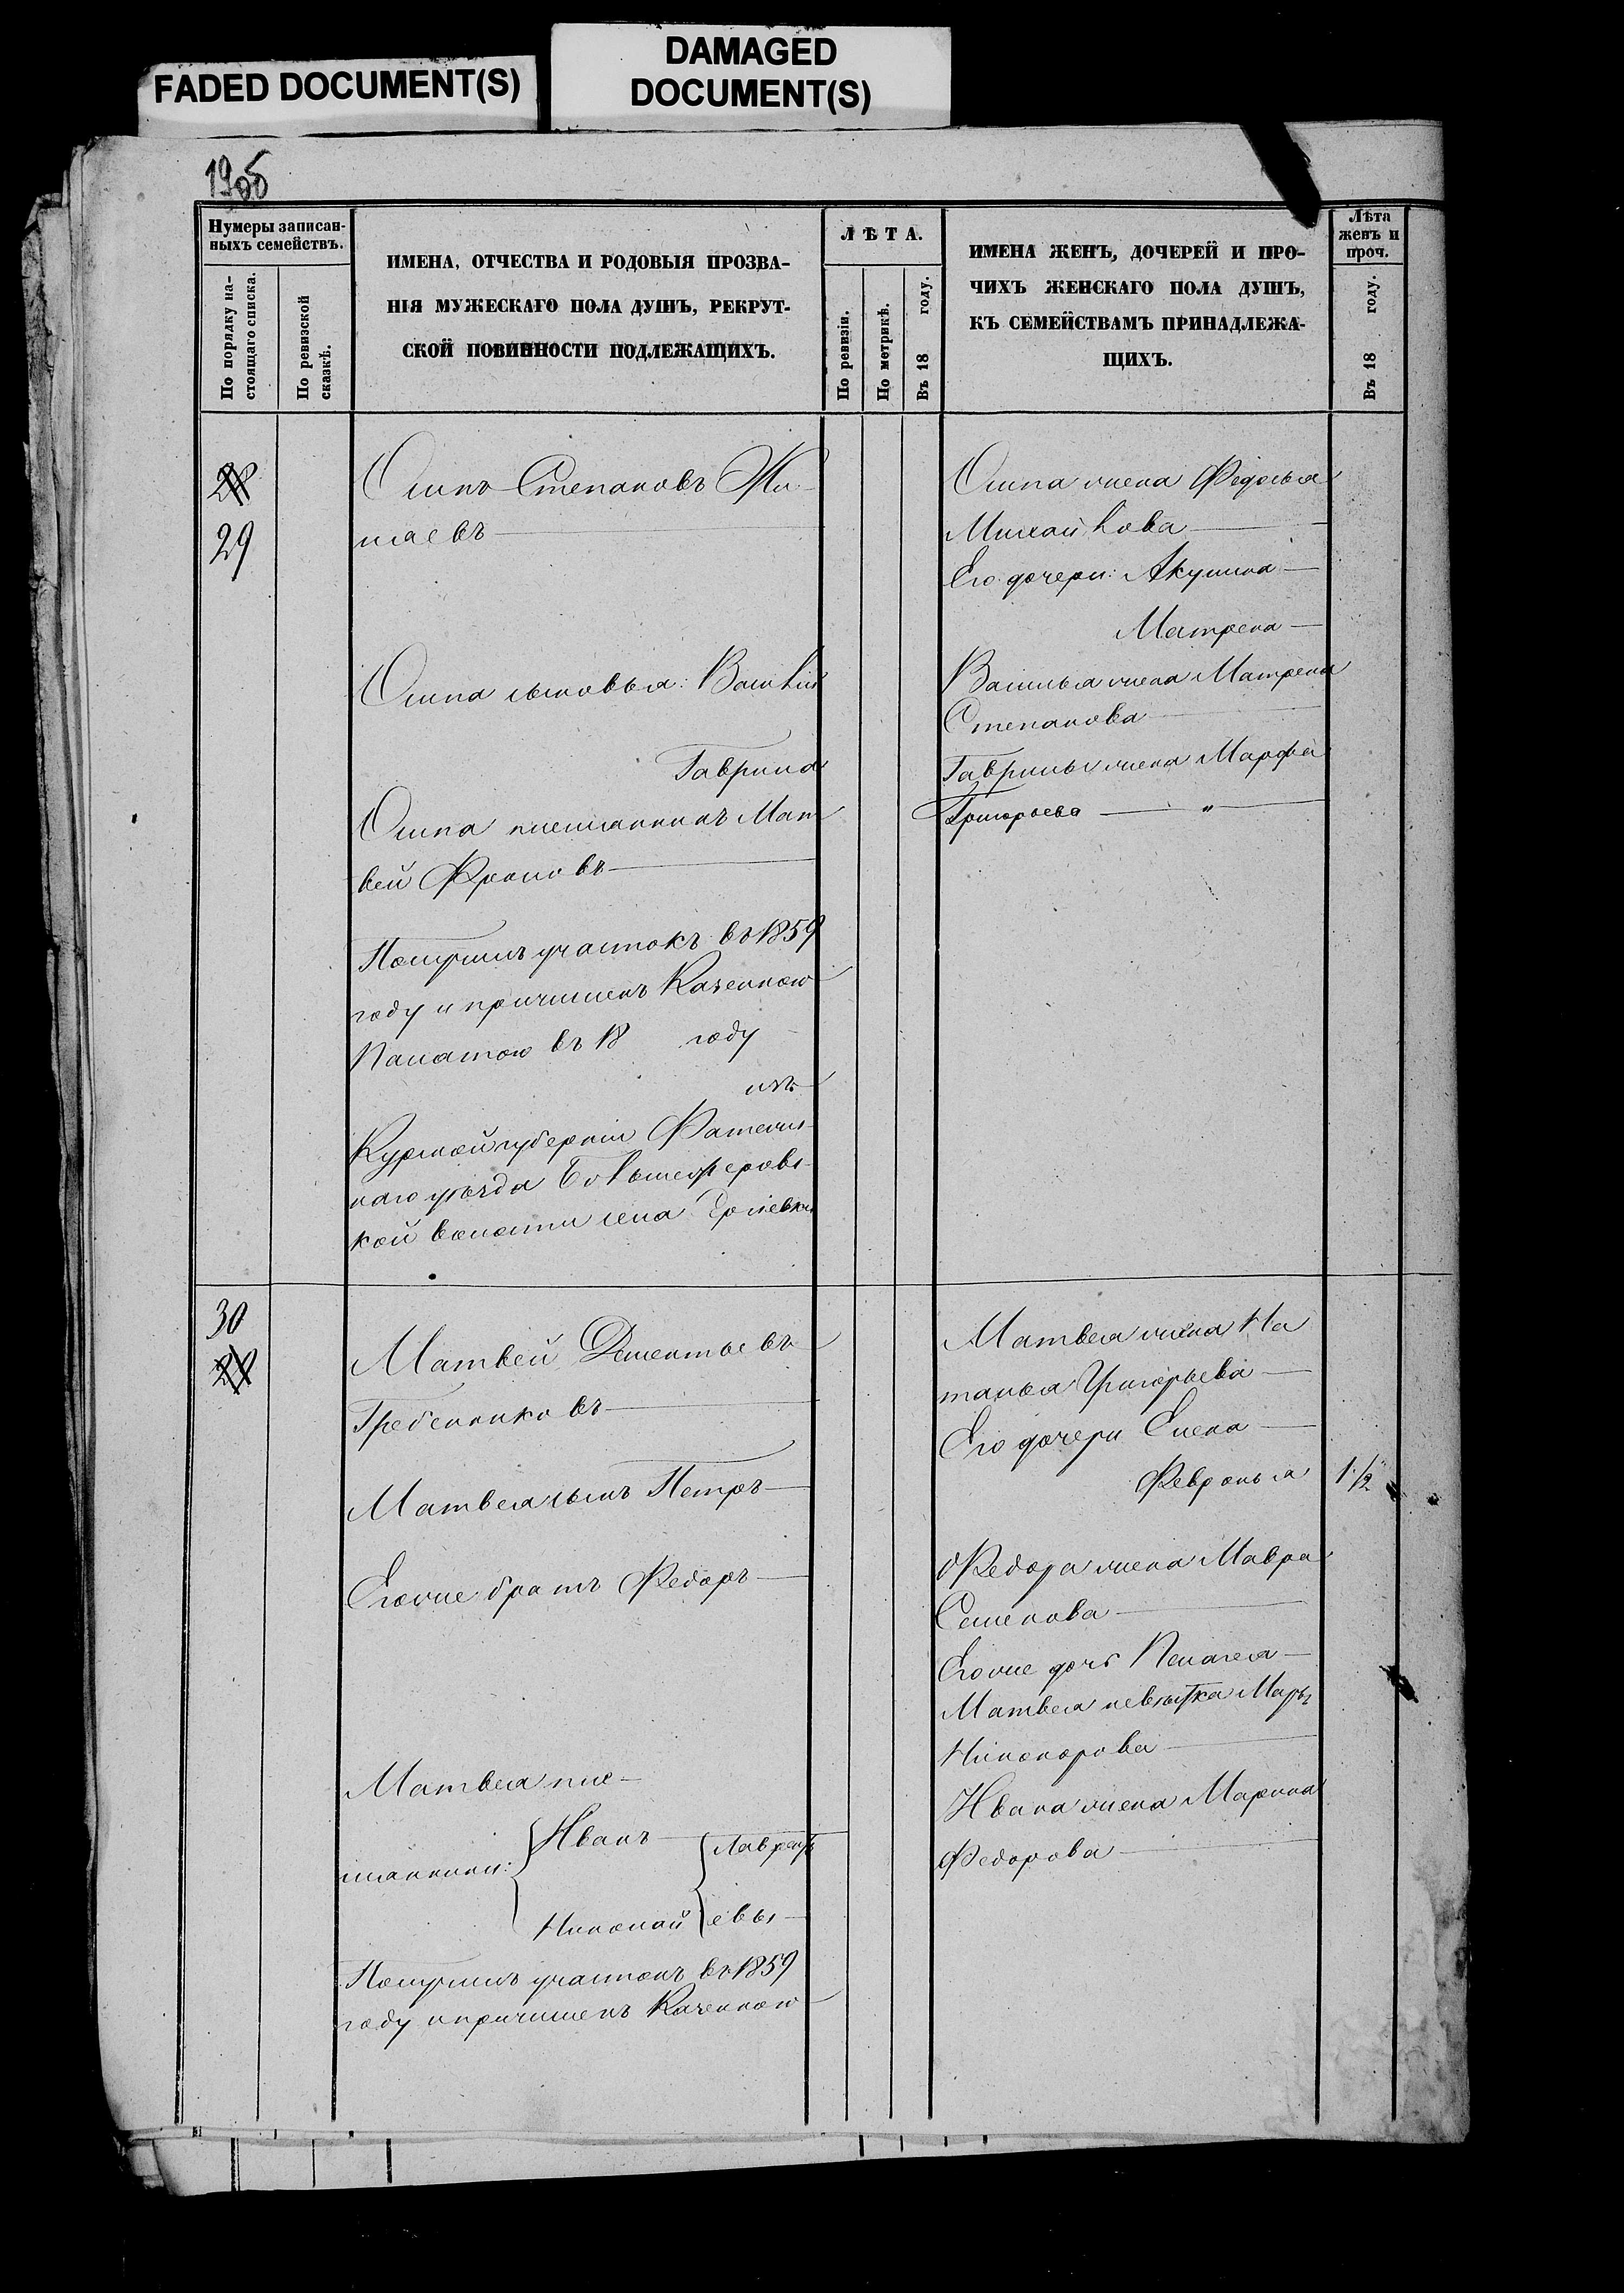 FADED DOCUMENT(S)
DAMAGED
DOCUMENT(S)
Нумеры записан-
ныхъ семействъ.
По порядку на-
стоящаго списка.
По ревизской
сказкѣ.
ИМЕНА, ОТЧЕСТВА И РОДОВЫЯ ПРОЗВА-
НІЯ МУЖЕСКАГО ПОЛА ДУШЪ, РЕКРУТ-
СКОЙ ПОВИННОСТИ ПОДЛЕЖАЩИХЪ.
ЛѢТА.
По ревизіи.
По метрикѣ.
Въ 18 году.
ИМЕНА ЖЕНЪ, ДОЧЕРЕЙ И ПРО-
ЧИХЪ ЖЕНСКАГО ПОЛА ДУШЪ,
КЪ СЕМЕЙСТВАМЪ ПРИНАДЛЕЖА-
ЩИХЪ.
Лѣта
женъ и
проч.
Въ 18 году.
29
Осипъ Степановъ
Осипа сыновья: Василій
Гаврила
Осипа племянникъ Мат
вей Фроловъ
Поступилъ участокъ въ 1859
году и причисленъ Казенною
Палатою въ 18 году
изъ
Курской губерніи Фатежс
каго уѣзда
кой волости села
Осипа жена Федосья
Михайлова
Его дочери: Акулина
Матрена
Василья жена Матрена
Степанова
Гаврилы жена Марфа
Григорьева "
30
Матвей Дементьевъ
Гребенниковъ
Матвея сынъ Петръ
Егоже братъ Федоръ
Матвея пле-
мянники:
Иванъ
Николай
Лаврент
евы
Поступилъ участокъ въ 1859
году и причисленъ Казенною
Матвея жена На
талья Григорьева
Его дочери Елена
Февронья 1/2
Федора жена Мавра
Семенова
Егоже дочь Пелагея
Матвея невѣстка Марья
Никонорова
Ивана жена Марина
Федорова